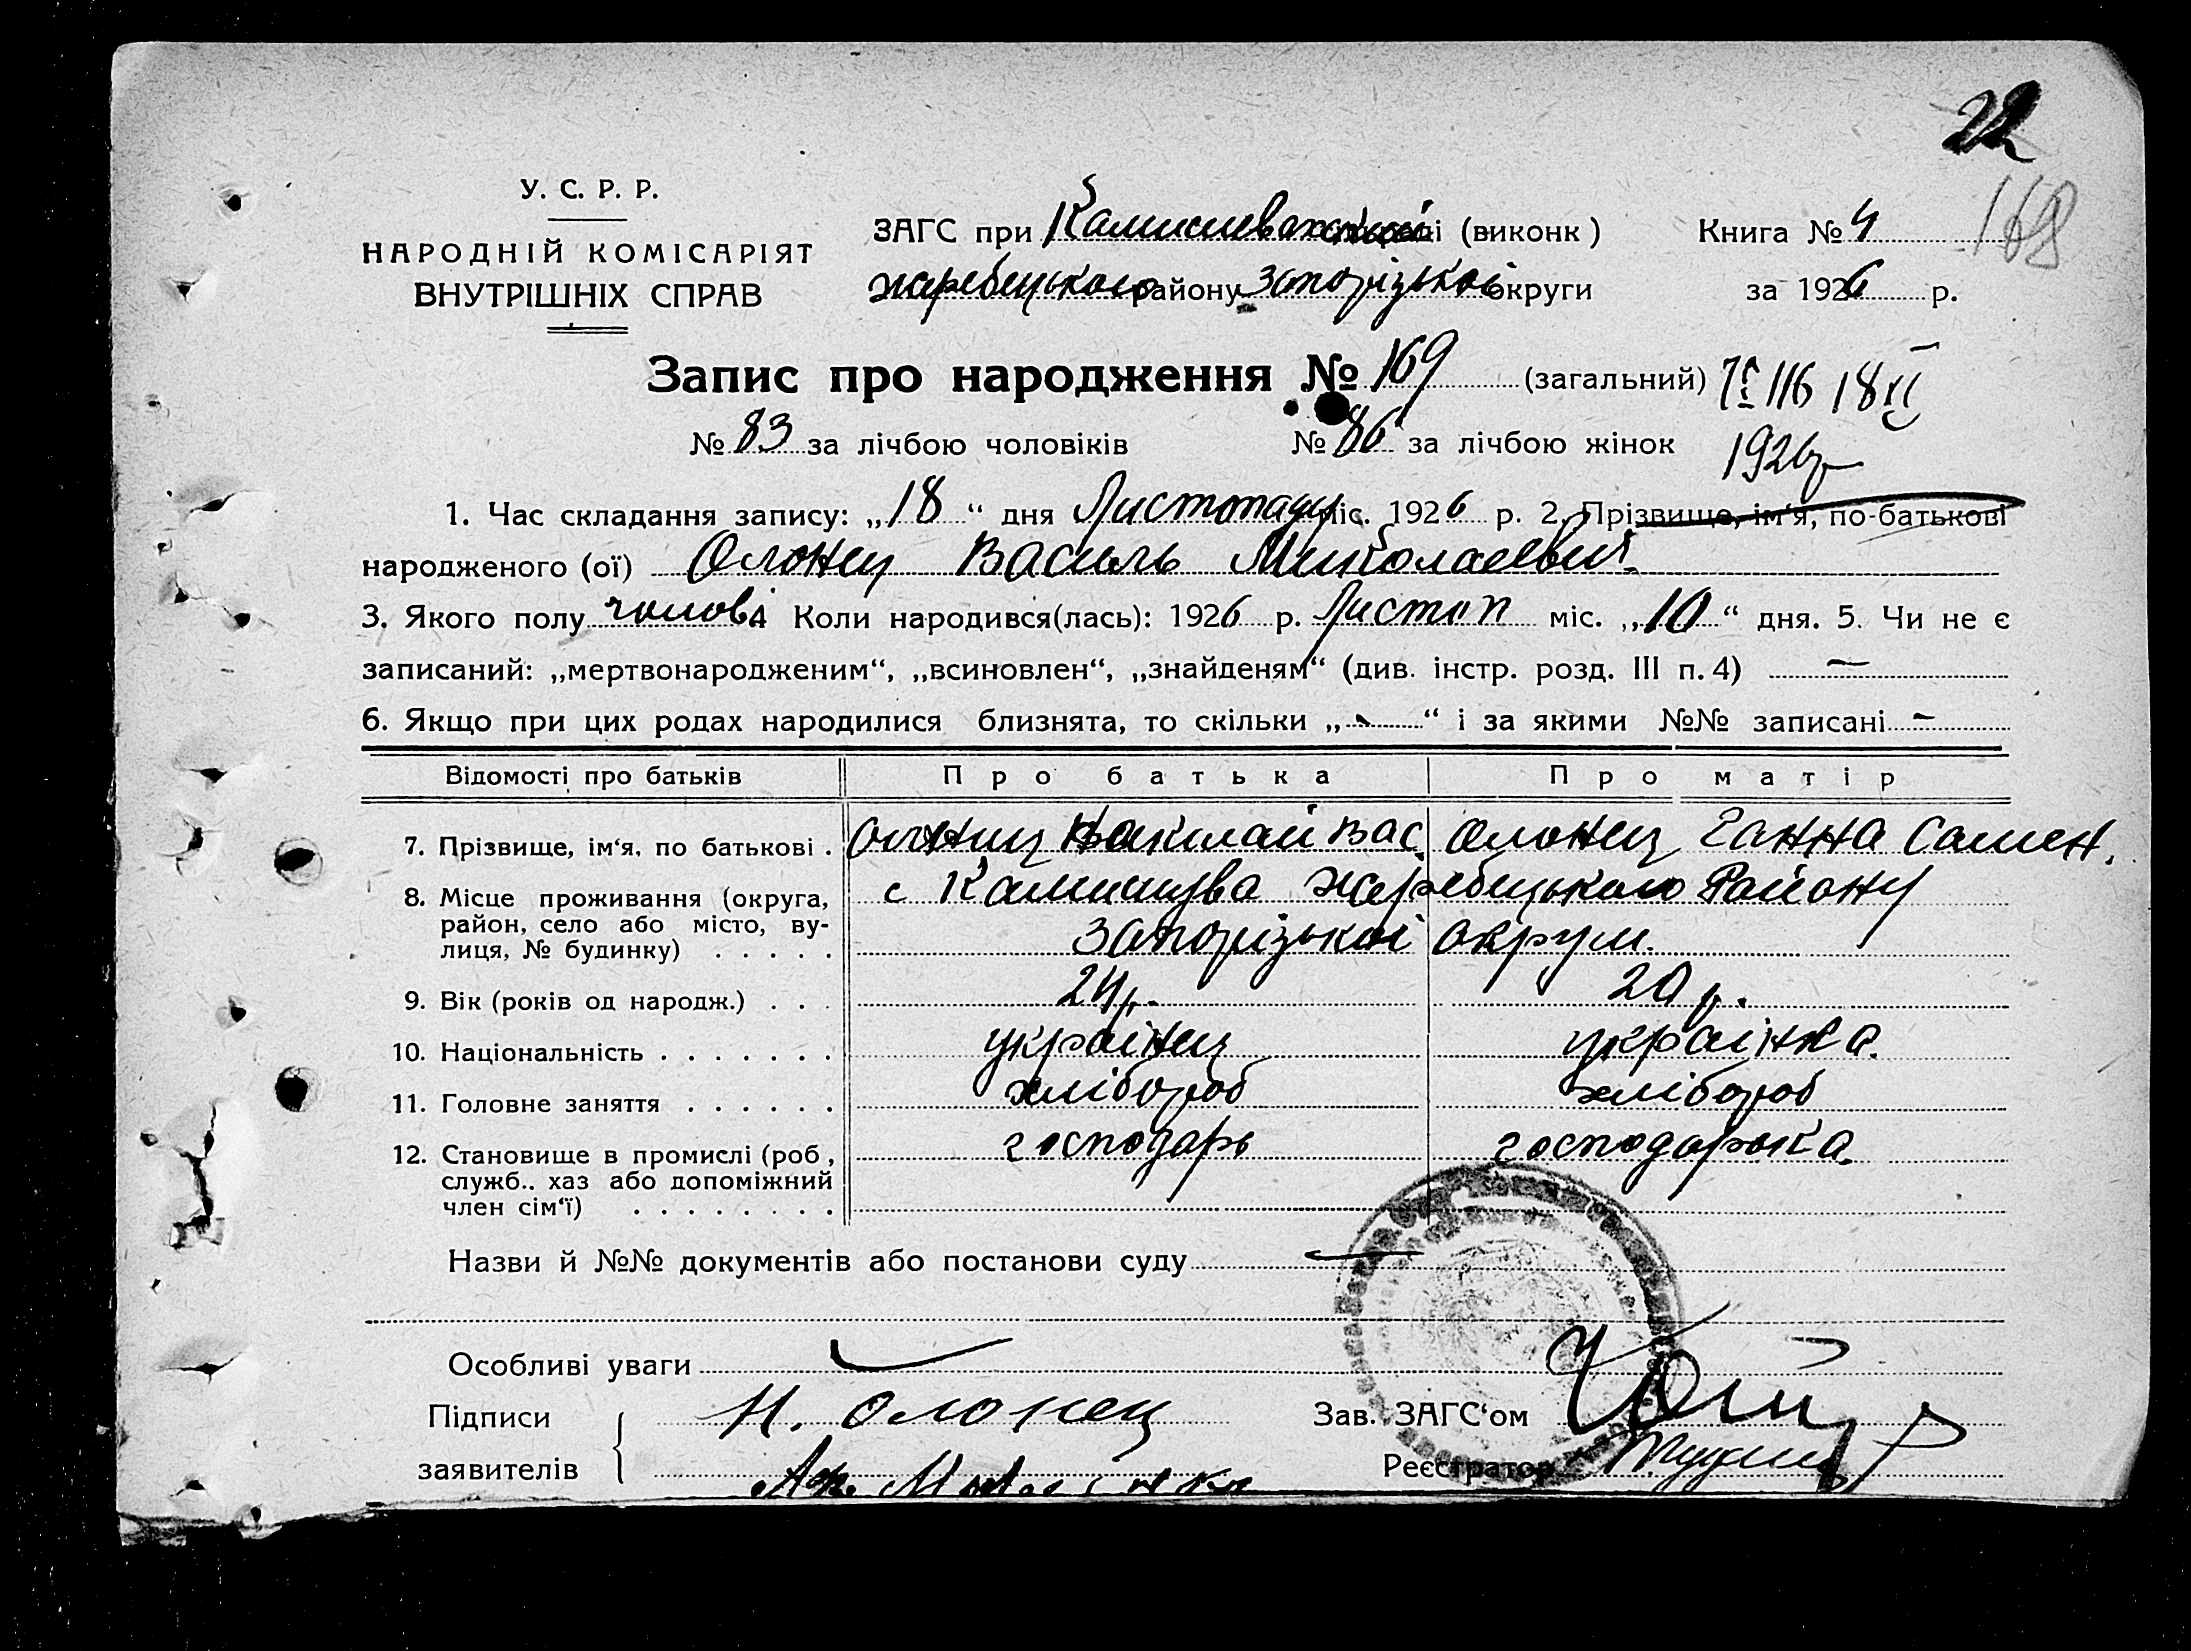 22
168
У. С. Р. Р.
НАРОДНІЙ КОМІСАРІЯТ
ВНУТРІШНІХ СПРАВ
ЗАГС при Камишевахській (виконк)
Книга № 4
жеребецького району Запорізькой округи
за 1926 р.
Запис про народження № 169 (загальний) 116 18 XI
№ 83 за лічбою чоловіків № 86 за лічбою жінок
1926р
1. Час складання запису: „18“ дня Листопаду міс. 1926 р. 2. Прізвище, ім‘я, по-батькові
народженого (ої) Олонец Василь Миколаевич
3. Якого полу чолові 4 Коли народився(лась): 1926 р. Листоп міс. „10“ дня. 5. Чи не є
записаний: „мертвонародженим“, „всиновлен“, „знайденям“ (див. інстр. розд. III п. 4) —
6. Якщо при цих родах народилися близнята, то скільки „-“ і за якими №№ записані -
Відомості про батьків Про батька Про матір
7. Прізвище, ім‘я, по батькові . Олонец Николай Вас. Олонец Ганна Самен.
8. Місце проживання (округа, район, село або місто, вулиця, № будинку) . . . . .
с Камишува жеребецького Району
Запорізької округи.
9. Вік (років од народж.) . . . 24р. 20 р.
10. Національність . . . . . . . українец українка.
11. Головне заняття . . . . . . хлібороб хлібороб
12. Становище в промислі (роб, служб.. хаз або допоміжний член сім‘ї) . . . . . . . .
господарь господарька.
Назви й №№ документів або постанови суду —
Особливі уваги
Підписи
заявителів
Н. Олонец
Зав. ЗАГС‘ом
Реєстратор